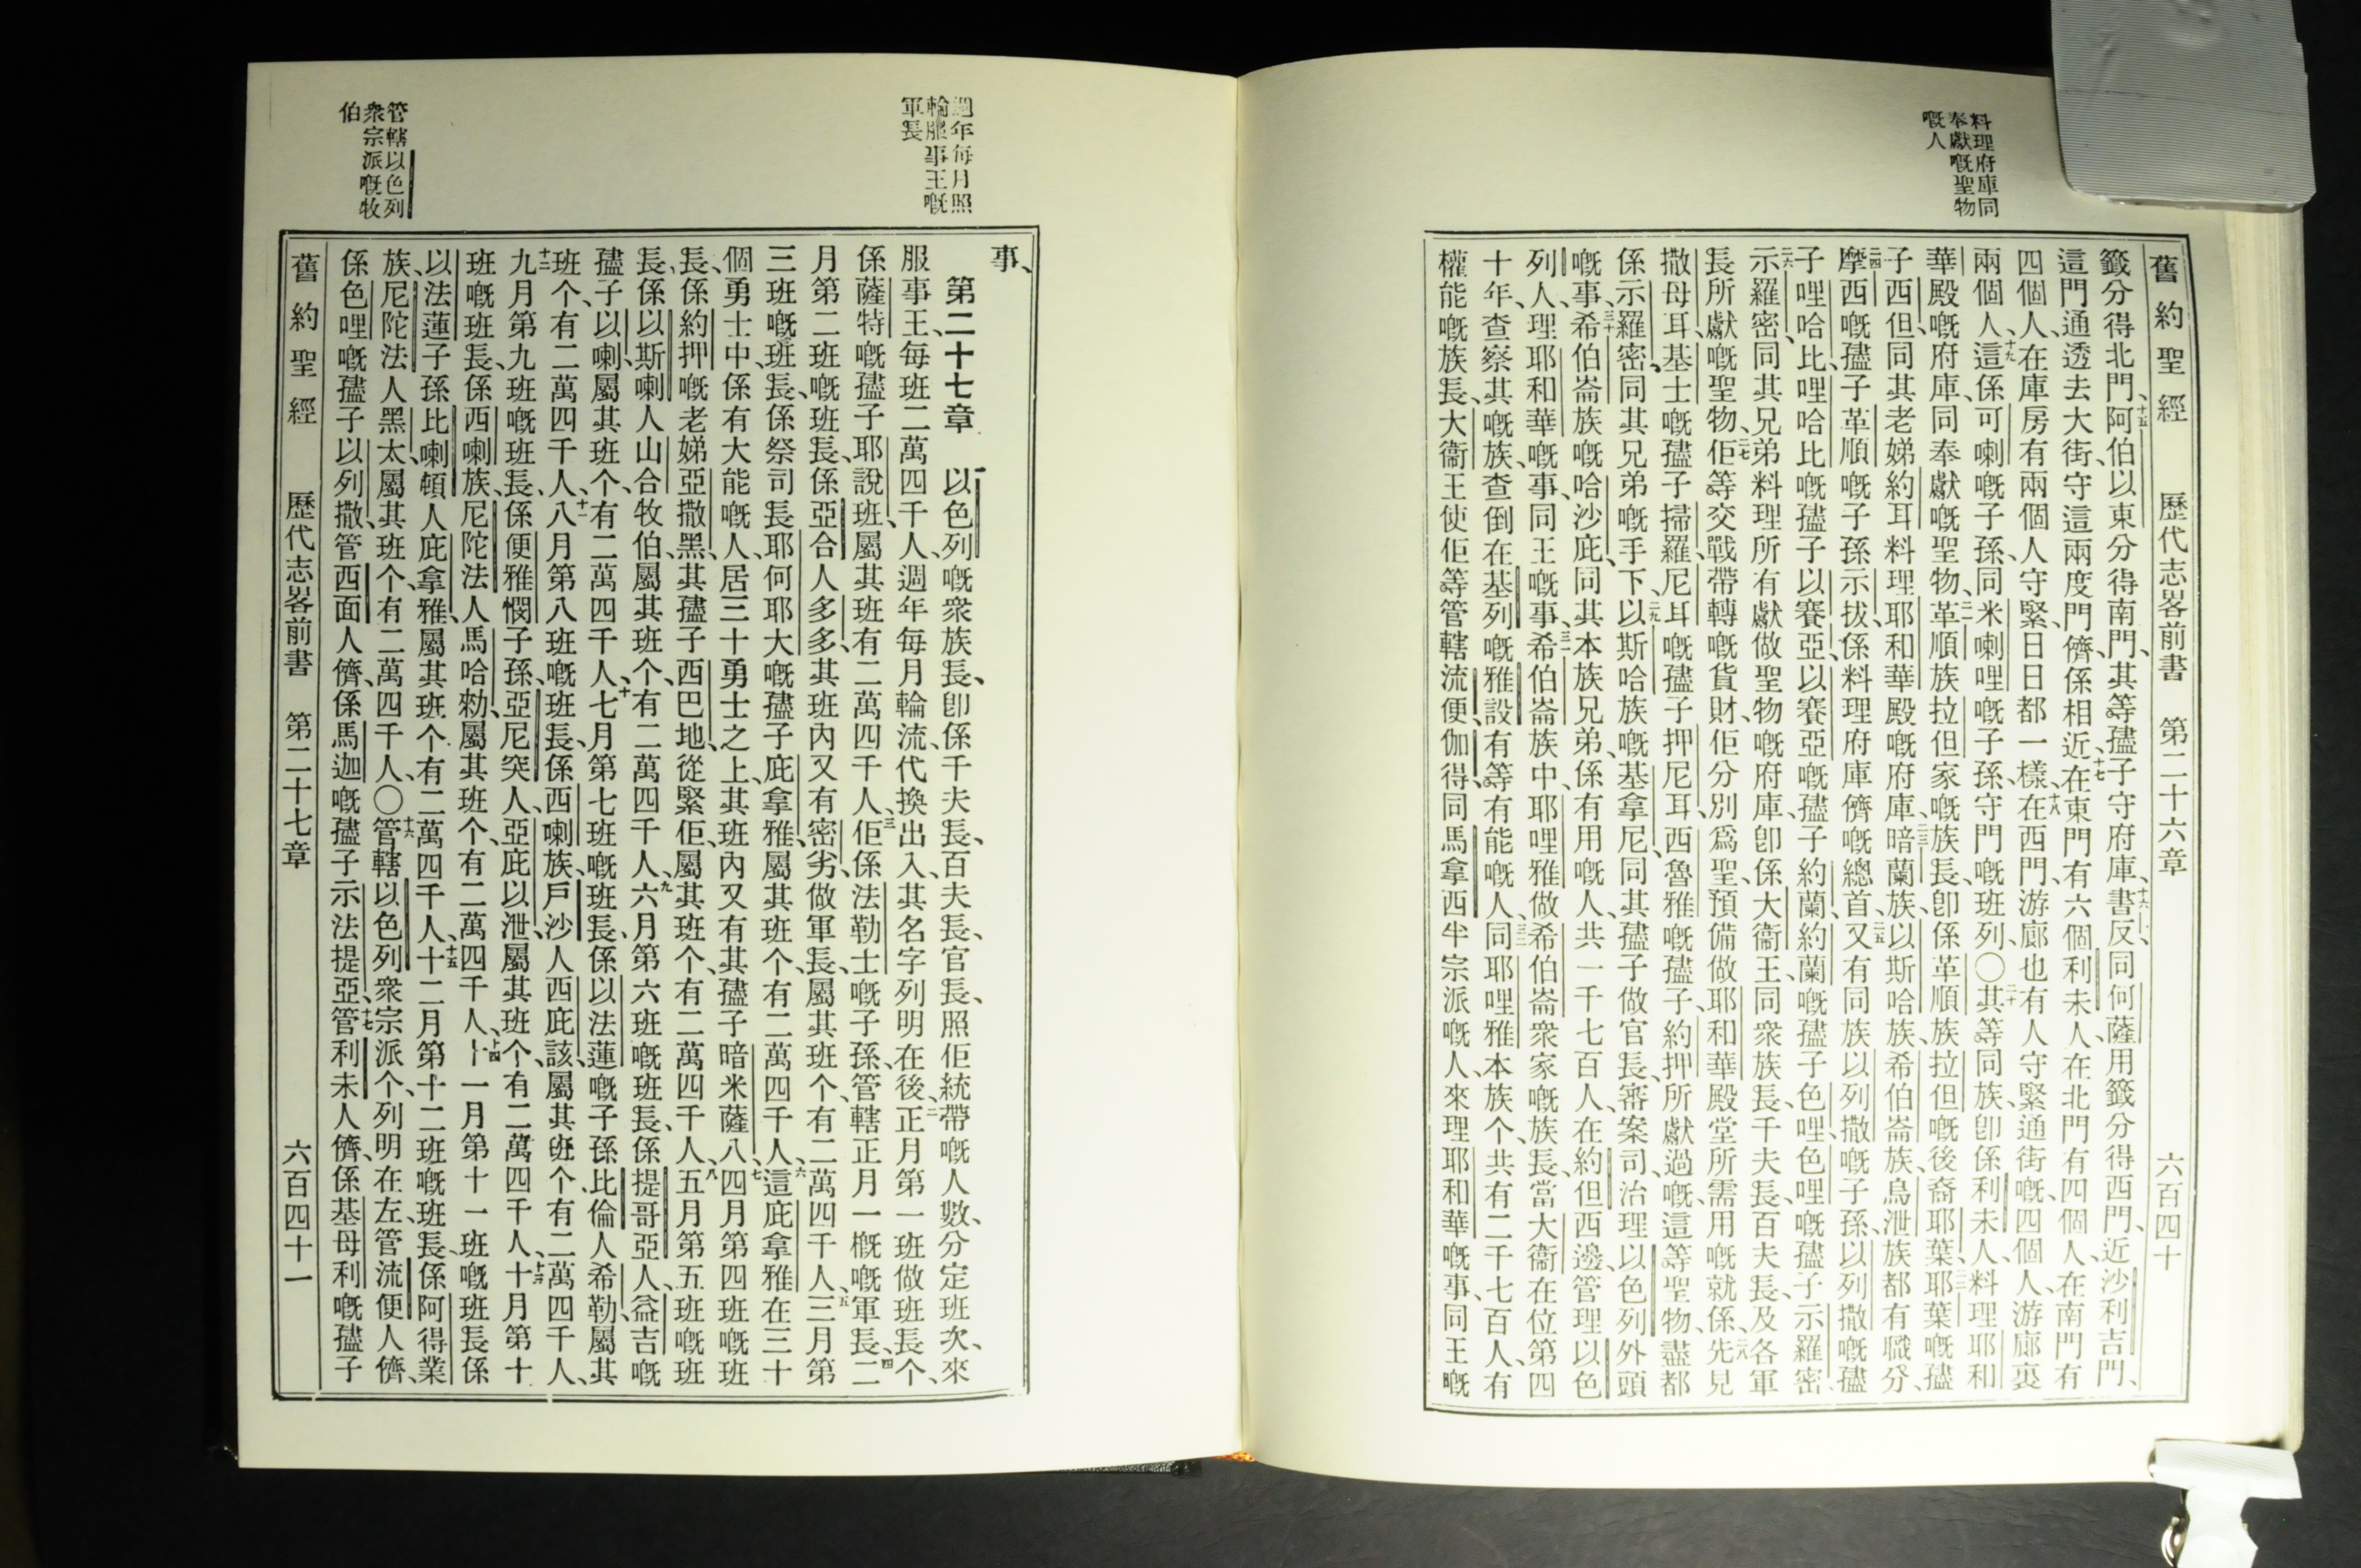 料理府庫同
奉獻嘅聖物
嘅人
舊約聖經 歷代志畧前書 第二十六章 六百四十
籤分得北門、十五阿伯以東分得南門、其等孻子守府庫、十六書反、同何薩用籤分得西門、近沙利吉門、
這門通透去大街、守這兩度門儕係相近、十七在東門有六個利未人、在北門有四個人、在南門有
四個人、在庫房有兩個人守緊、日日都一樣、十八在西門、游廊也有人守緊通街嘅、四個人、游廊裏
兩個人、十九這係可喇嘅子孫、同米喇哩嘅子孫、守門嘅班列、〇二十其等同族、卽係利未人、料理耶和
華殿嘅府庫、同奉獻嘅聖物、二一革順族拉但家嘅族長、卽係革順族拉但嘅後裔耶葉、二二耶葉嘅孻
子西但、同其老娣約耳料理耶和華殿嘅府庫、二三暗蘭族、以斯哈族、希伯崙族、烏泄族都有職分、
二四摩西嘅孻子革順嘅子孫示拔、係料理府庫儕嘅總首、二五又有同族以列撒嘅子孫、以列撒嘅孻
子哩哈比、哩哈比嘅孻子以賽亞、以賽亞嘅孻子約蘭、約蘭嘅孻子色哩、色哩嘅孻子示羅密、
二六示羅密、同其兄弟料理所有獻做聖物嘅府庫、卽係大衞王、同衆族長、千夫長、百夫長、及各軍
長所獻嘅聖物、二七佢等交戰帶轉嘅貨財、佢分別爲聖、預備做耶和華殿堂所需用嘅就係、二八先見
撒母耳、基士嘅孻子掃羅、尼耳嘅孻子押尼耳、西魯雅嘅孻子約押所獻過嘅、這等聖物、盡都
係示羅密、同其兄弟嘅手下、二九以斯哈族嘅基拿尼、同其孻子做官長、審案司、治理以色列外頭
嘅事、三十希伯崙族嘅哈沙庇、同其本族兄弟、係有用嘅人、共一千七百人、在約但西邊管理以色
列人、理耶和華嘅事、同王嘅事、三一希伯崙族中、耶哩雅做希伯崙衆家嘅族長、當大衞在位第四
十年、查察其嘅族、查倒在基列嘅雅設有等有能嘅人、三二同耶哩雅本族个、共有二千七百人、有
權能嘅族長、大衞王使佢等管轄流便、伽得、同馬拿西半宗派嘅人、來理耶和華嘅事、同王嘅
週年每月照
輪服事王嘅
軍長
管轄以色列
衆宗派嘅牧
伯
事、
第二十七章 以色列嘅衆族長、卽係千夫長、百夫長、官長、照佢統帶嘅人數、分定班次、來
服事王、每班二萬四千人、週年每月輪流、代換出入、其名字列明在後、二正月第一班做班長个、
係薩特嘅孻子耶說班、屬其班有二萬四千人、三佢係法勒士嘅子孫、管轄正月一概嘅軍長、四二
月第二班嘅班長、係亞合人多多、其班內又有密劣做軍長、屬其班个、有二萬四千人、五三月第
三班嘅班長、係祭司長耶何耶大嘅孻子庇拿雅、屬其班个、有二萬四千人、六這庇拿雅在三十
個勇士中、係有大能嘅人、居三十勇士之上、其班內又有其孻子暗米薩八、七四月第四班嘅班
長、係約押嘅老娣亞撒黑、其孻子西巴地從緊佢、屬其班个、有二萬四千人、八五月第五班嘅班
長、係以斯喇人山合牧伯、屬其班个、有二萬四千人、九六月第六班嘅班長、係提哥亞人、益吉嘅
孻子以喇、屬其班个、有二萬四千人、十七月第七班嘅班長、係以法蓮嘅子孫、比倫人希勒、屬其
班个、有二萬四千人、十一八月第八班嘅班長、係西喇族、戶沙人西庇該、屬其班个、有二萬四千人、
十二九月第九班嘅班長、係便雅憫子孫、亞尼突人、亞庇以泄、屬其班个、有二萬四千人、十三十月第十
班嘅班長、係西喇族、尼陀法人馬哈勑、屬其班个、有二萬四千人、十四十一月第十一班嘅班長係
以法蓮子孫、比喇頓人庇拿雅、屬其班个、有二萬四千人、十五十二月第十二班嘅班長、係阿得業
族、尼陀法人黑太、屬其班个、有二萬四千人、〇十六管轄以色列衆宗派个、列明在左、管流便人儕、
係色哩嘅孻子以列撒、管西面人儕、係馬迦嘅孻子示法提亞、十七管利未人儕、係基母利嘅孻子
舊約聖經 歷代志畧前書 第二十七章 六百四十一